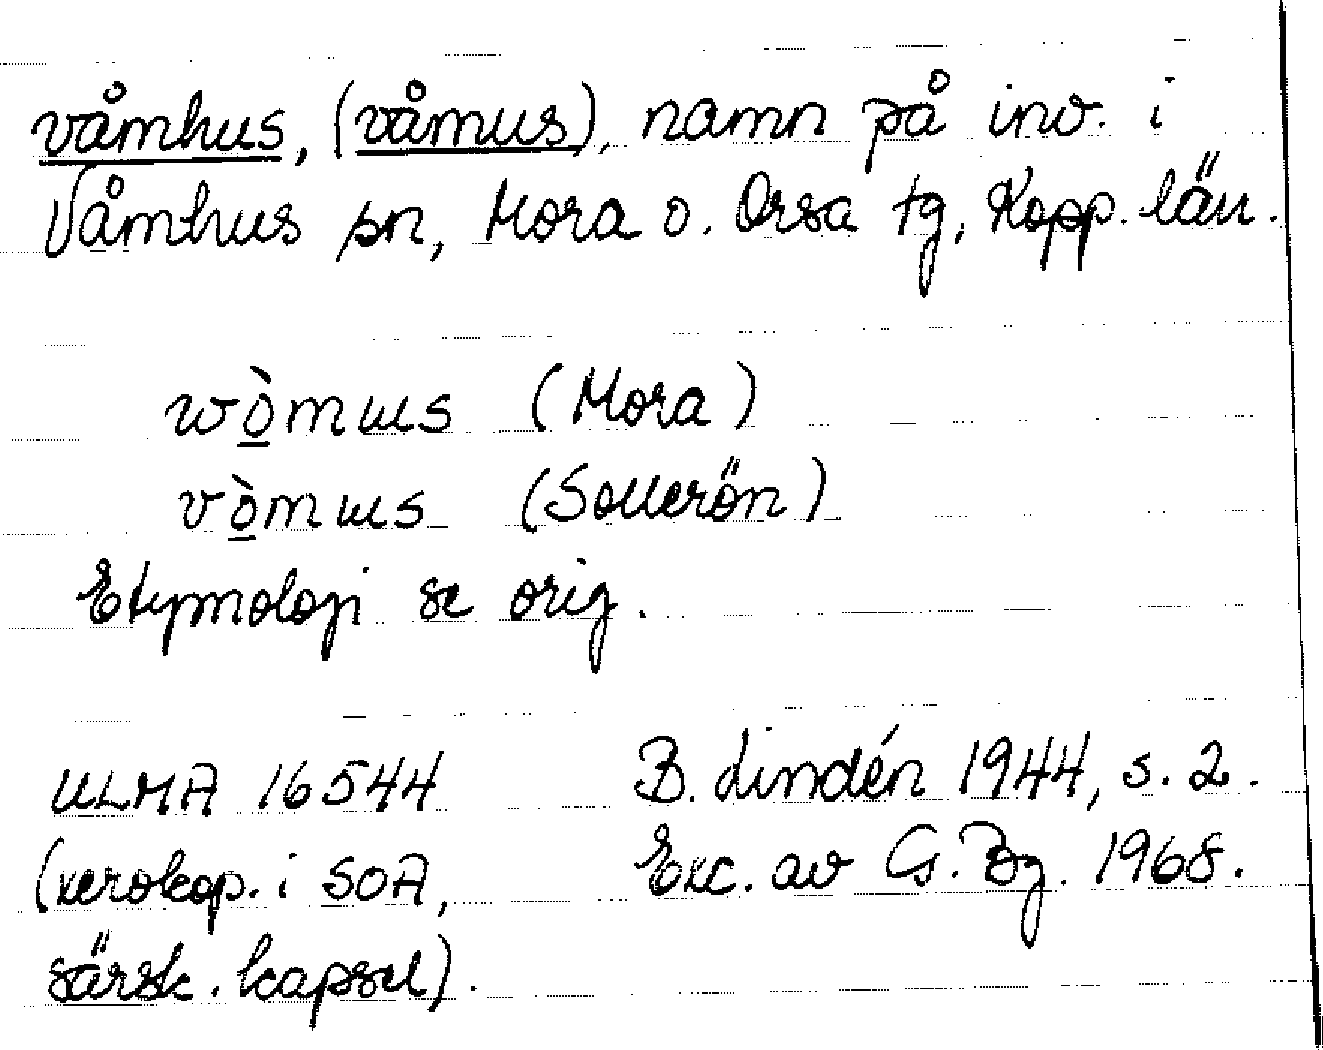 våmhus, (våmus), namn på inv. i
Våmhus sn, Mora o. Orsa tg, Kopp. län.
wò̲mɯs (Mora)
vò̲mɯs (Sollerön)
Etymologi se orig.
ULMA 16544
(xerokop. i SOA,
särsk. kapsel).
B. Lindén 1944, s. 2.
Exc. av G. Bg. 1968.